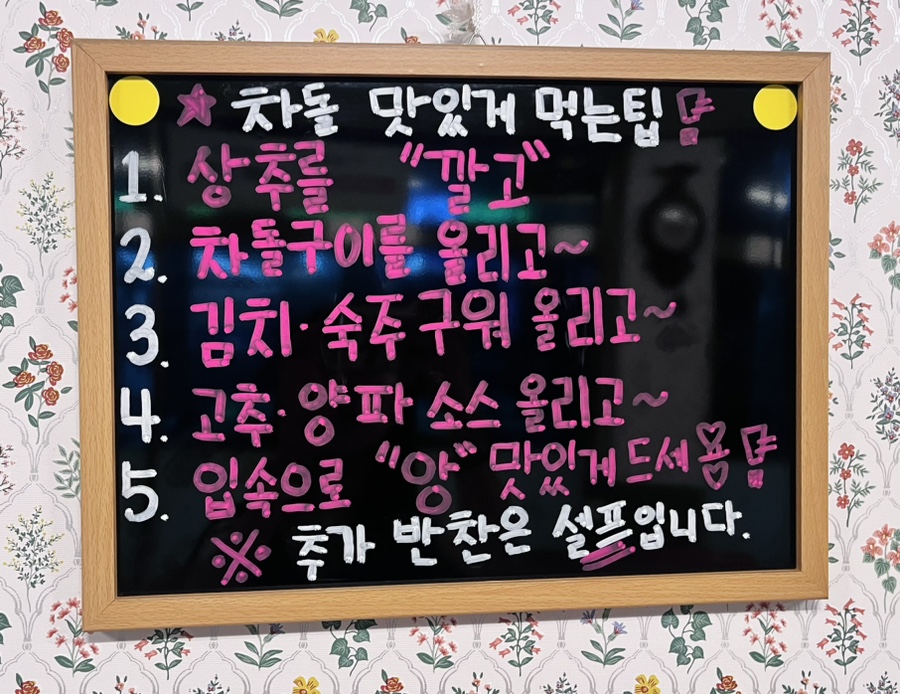 ★ 차돌 맛있게 먹는팁!
1. 상추를 "깔고"
2. 차돌구이를 올리고~
3. 김치·숙주 구워 올리고~
4. 고추·양파 소스 올리고~
5. 입속으로 "앙" 맛있게드세용!
※ 추가 반찬은 셀프입니다.